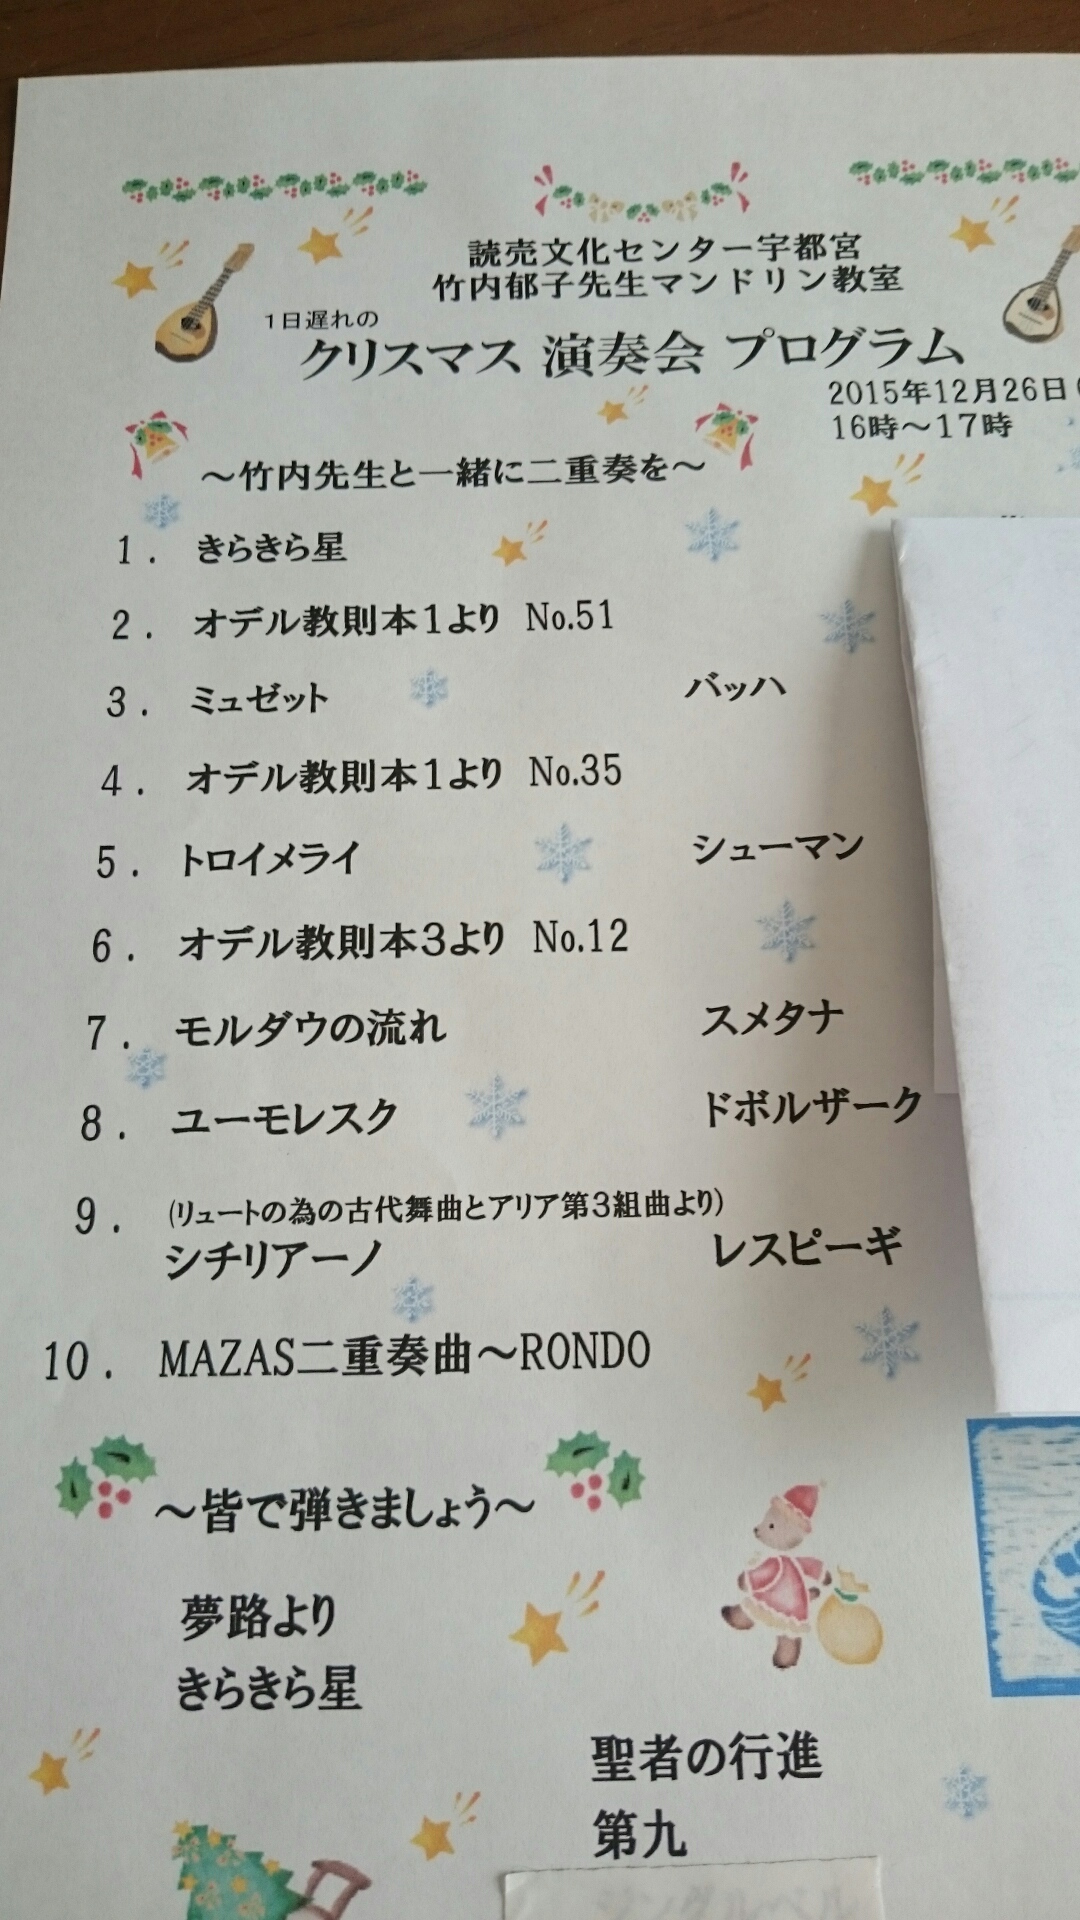 読売文化センター宇都宮
竹内郁子先生マンドリン教室
1日遅れの
クリスマス 演奏会 プログラム
2015年12月26日(
16時～17時
～竹内先生と一緒に二重奏を～
1. きらきら星
2. オデル教則本1より No.51
3. ミュゼット バッハ
4. オデル教則本1より No.35
5. トロイメライ シューマン
6. オデル教則本3より No.12
7. モルダウの流れ スメタナ
8. ユーモレスク ドボルザーク
9. (リュートの為の古代舞曲とアリア第3組曲より)
シチリアーノ レスピーギ
10. MAZAS二重奏曲～RONDO
～皆で弾きましょう～
夢路より
きらきら星
聖者の行進
第九